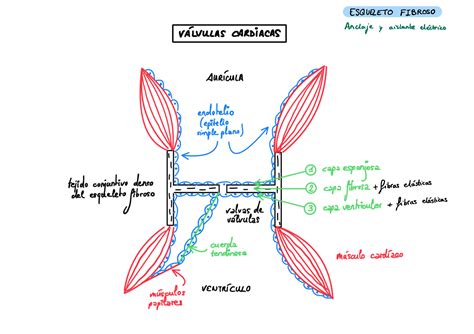 ESQUELETO FIBROSO
Anclaje y aislante eléctrico
VÁLVULAS CARDÍACAS
AURÍCULA
endotelio
(epitelio
simple plano)
① capa esponjosa
tejido conjuntivo denso
del esqueleto fibroso
② capa fibrosa + fibras elásticas
③ capa ventricular + fibras elásticas
valvas de
válvulas
cuerda
tendinosa
músculo cardíaco
músculos
papilares
VENTRÍCULO